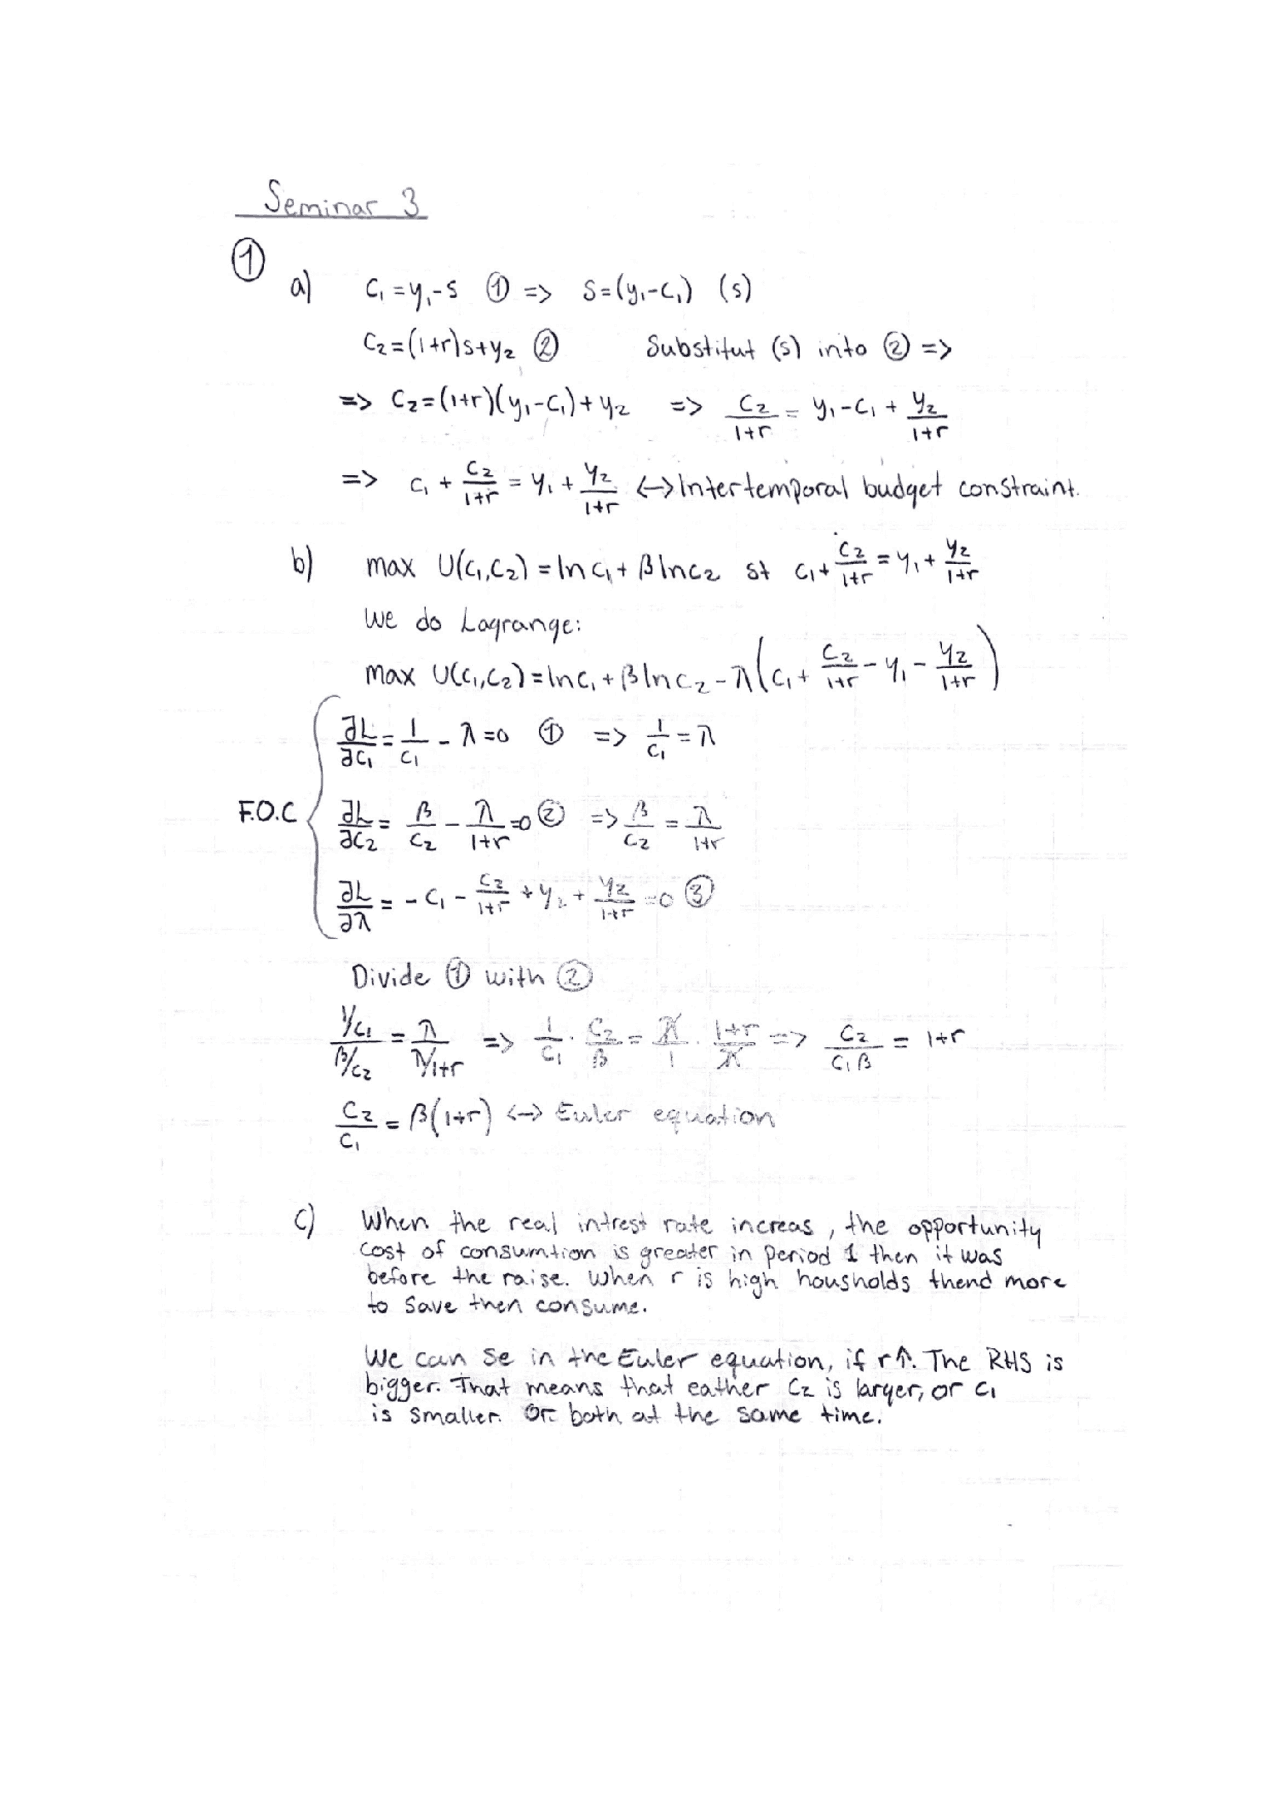 Seminar 3
① a) C₁ = y₁ - s ① => S = (y₁ - C₁) (s)
C₂ = (1+r)s + y₂ ② Substitut (s) into ② =>
=> C₂ = (1+r)(y₁ - C₁) + y₂ => C₂/(1+r) = y₁ - C₁ + y₂/(1+r)
=> C₁ + C₂/(1+r) = y₁ + y₂/(1+r) <-> Intertemporal budget constraint.
b) max U(C₁, C₂) = ln C₁ + β ln C₂ st C₁ + C₂/(1+r) = y₁ + y₂/(1+r)
We do Lagrange:
max U(C₁, C₂) = ln C₁ + β ln C₂ - λ(C₁ + C₂/(1+r) - y₁ - y₂/(1+r))
∂L/∂C₁ = 1/C₁ - λ = 0 ① => 1/C₁ = λ
F.O.C { ∂L/∂C₂ = β/C₂ - λ/(1+r) = 0 ② => β/C₂ = λ/(1+r)
∂L/∂λ = - C₁ - C₂/(1+r) + y₁ + y₂/(1+r) = 0 ③
Divide ① with ②
(1/C₁)/(β/C₂) = λ/(λ/1+r) => 1/C₁ · C₂/β = λ/1 · (1+r)/λ => C₂/(C₁β) = 1+r
C₂/C₁ = β(1+r) <-> Euler equation
c) When the real intrest rate increas, the opportunity
cost of consumtion is greater in period 1 then it was
before the raise. When r is high housholds thend more
to save then consume.
We can se in the Euler equation, if r↑. The RHS is
bigger. That means that eather C₂ is larger, or C₁
is smaller. Or both at the same time.